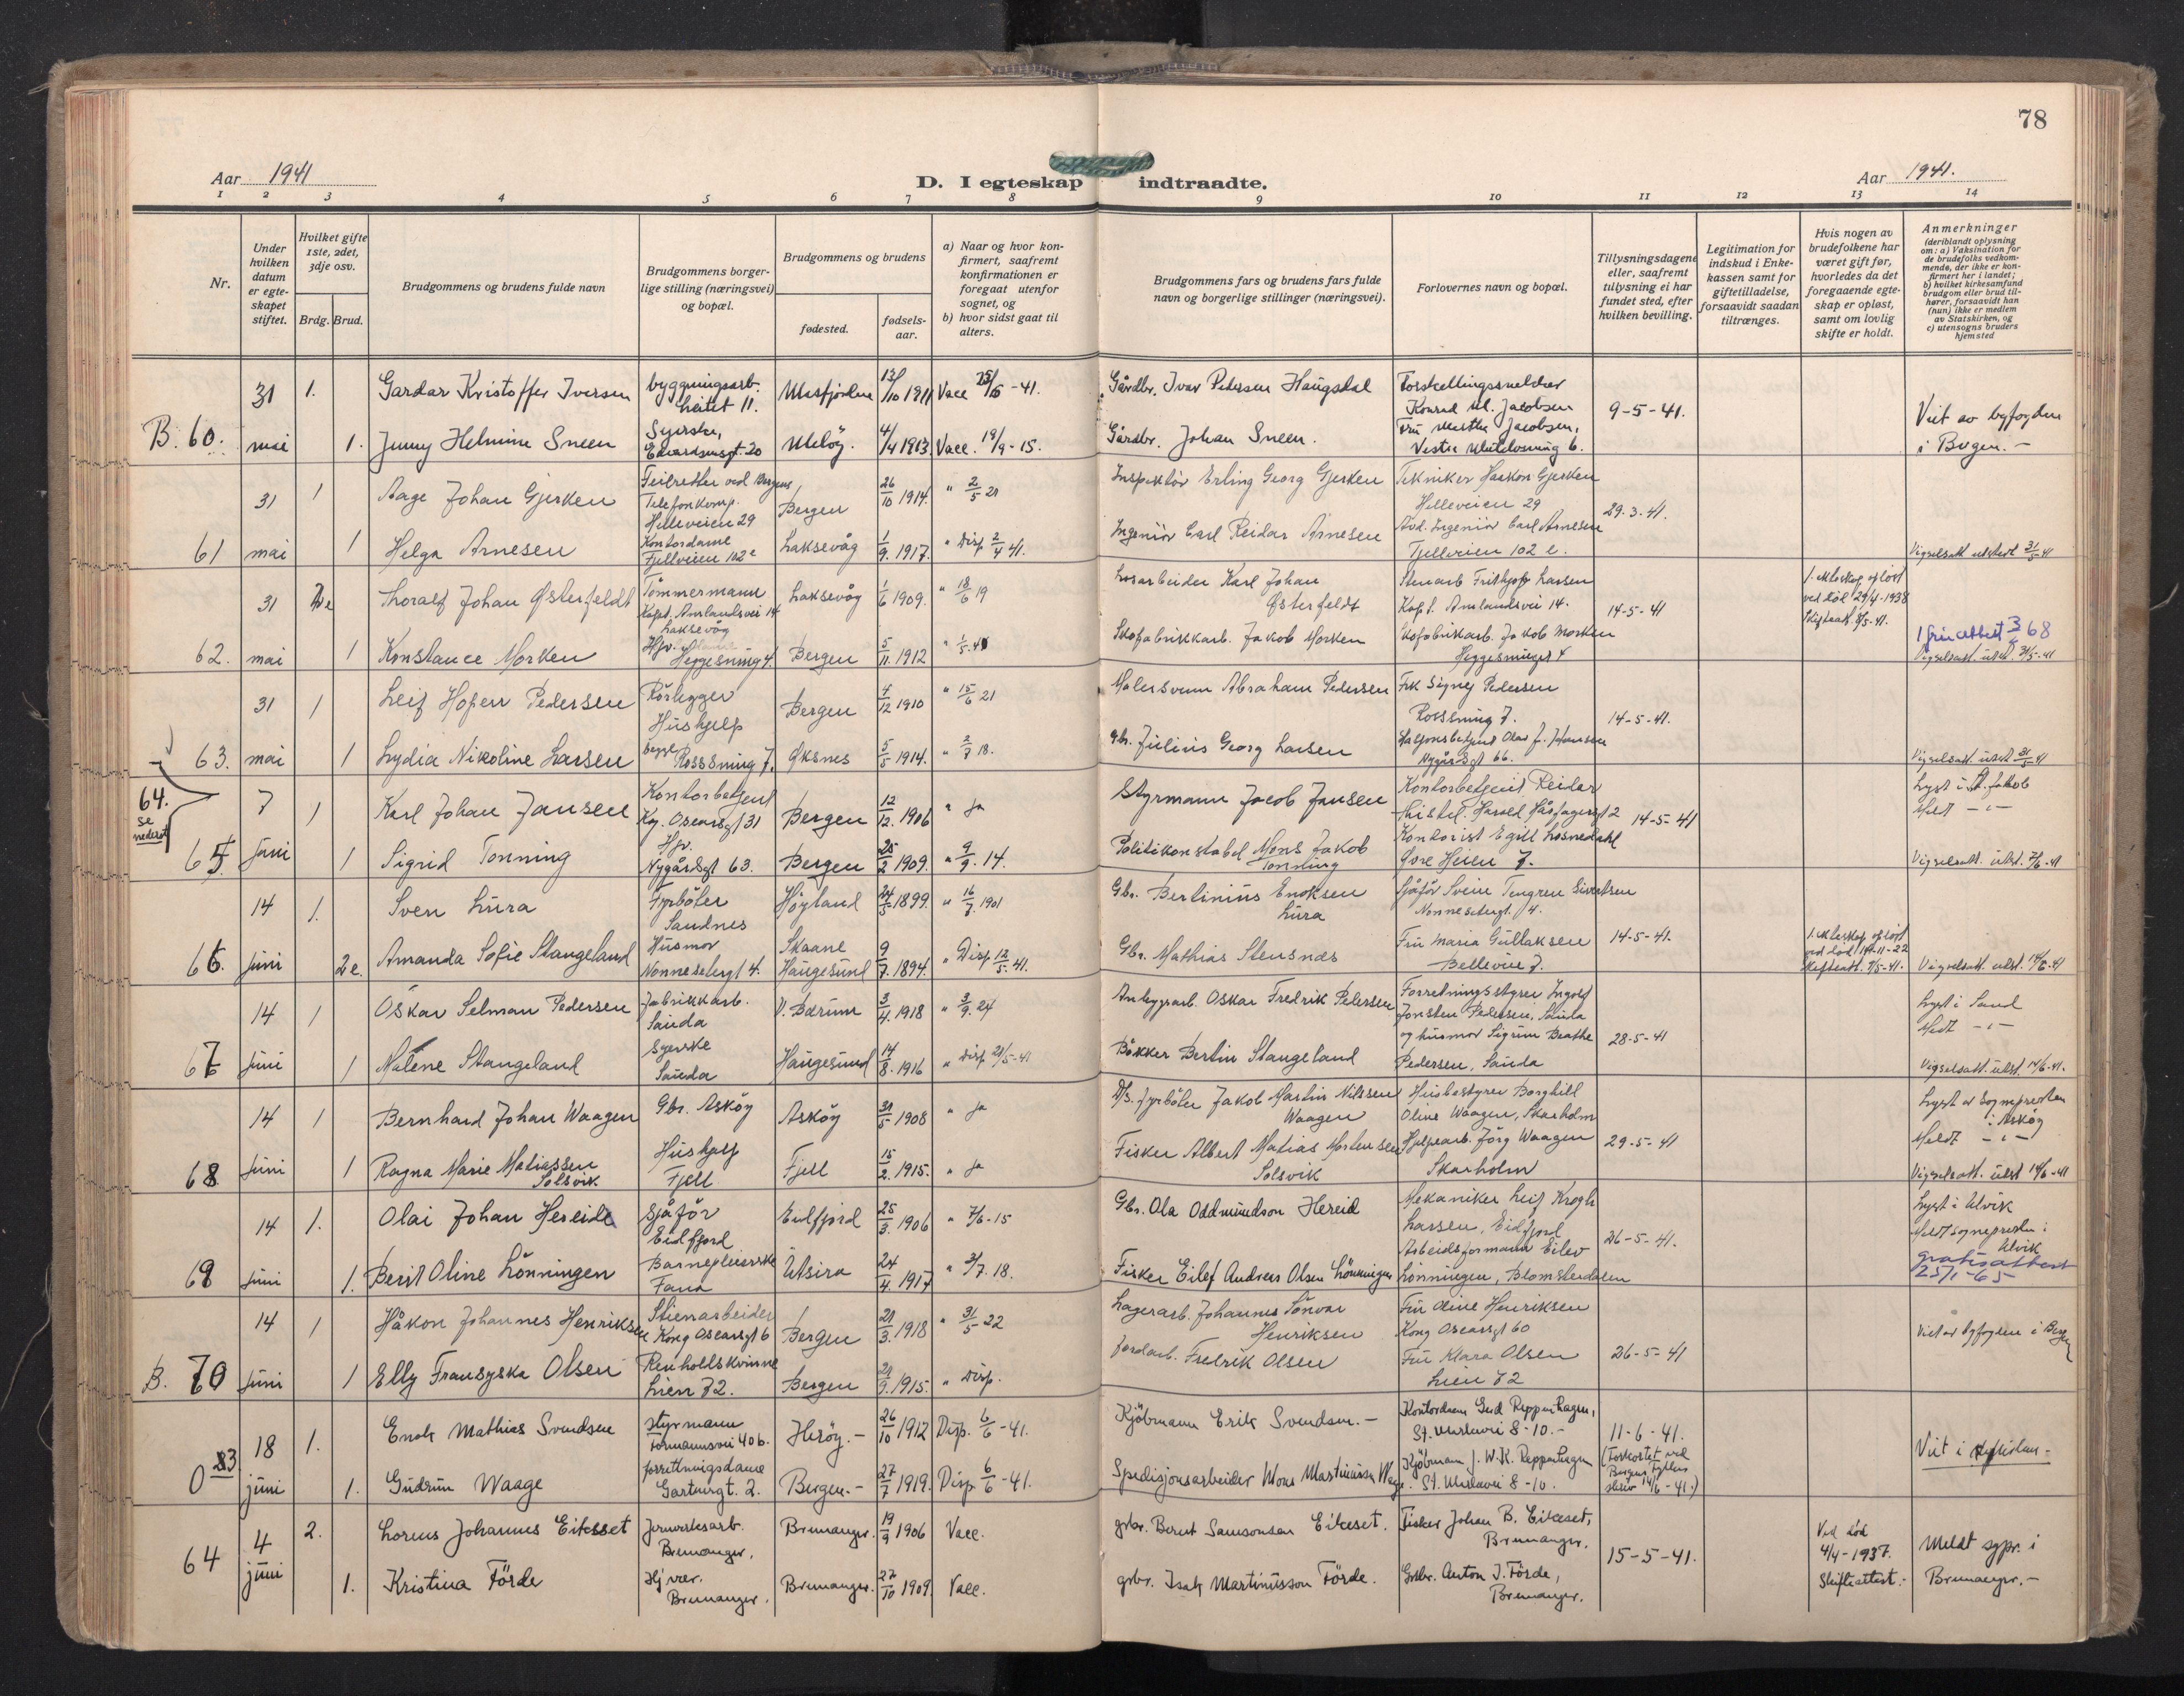 78
Aar 1941
D. I egteskap indtraadte.
Aar 1941.
1 2 3 4 5 6 7 8 9 10 11 12 13 14
Nr.
Under hvilken datum er egteskapet stiftet.
Hvilket gifte 1ste, 2det, 3dje osv.
Brdg. Brud.
Brudgommens og brudens fulde navn
Brudgommens borgerlige stilling (næringsvei) og bopæl.
Brudgommens og brudens
fødested.
fødselsaar.
a) Naar og hvor konfirmert, saafremt konfirmationen er foregaat utenfor sognet, og
b) hvor sidst gaat til alters.
Brudgommens fars og brudens fars fulde navn og borgerlige stillinger (næringsvei).
Forlovernes navn og bopæl.
Tillysningsdagene eller, saafremt tillysning ei har fundet sted, efter hvilken bevilling.
Legitimation for indskud i Enkekassen samt for giftetilladelse, forsaavidt saadan tiltrænges.
Hvis nogen av brudefolkene har været gift før, hvorledes da det foregaaende egteskap er opløst, samt om lovlig skifte er holdt.
Anmerkninger
(deriblandt oplysning om: a) Vaksination for de brudefolks vedkommende, der ikke er konfirmert her i landet; b) hvilket kirkesamfund brudgom eller brud tilhører, forsaavidt han (hun) ikke er medlem av Statskirken, og c) utensogns bruders hjemsted
31 1. Gardar Kristoffer Iversen byggningsarb. Leitet 11. 13/10 1911 Vacc 25/5-41. Gårdbr. Ivar Pedersen Haugsdal
Konrad M. Jacobsen 9-5-41.
B. 60. mai 1. Jenny Helmine Sneen Syerske, Edvardsensgt. 20 Meløy. 4/4 1913. Vacc. 19/9-15. Gårdbr. Johan Sneen. Fru Martha Jacobsen, Viet av byfogden i Bergen.-
31 1 Aage Johan Gjerken Feilretter ved Bergens Telefonkomp. Helleveien 29 Bergen 26/10 1914. " 2/5 21 Inspektör Erling Georg Gjerken Tekniker Haakon Gjerken Helleveien 29 29.3.41.
61 mai 1 Helga Arnesen Kontordame Fjellveien 102e Laksevåg 1/9. 1917. " Disp 2/4 41. Ingeniör Carl Reidar Arnesen Avd. Ingeniör Carl Arnesen Fjellveien 102 e. Vigselsatt utstedt 31/5-41
31 2de Thoralf Johan Østerfeldt Tömmermann Kapt. Amlandsvei 14 Laksevåg Laksevåg 1/6 1909. " 18/6 19 Karl Johan Østerfeldt Stenarb Frithjof Larsen Kapt. Amlandsvei 14. 14-5-41 1. ekteskap oplöst ved död 29/4-1938
62. mai 1 Konstance Morken Hjv. Heggesmug 4. Bergen 5/11. 1912 Skofabrikkarb. Jakob Morken Skofabrikarb. Jakob Morken Heggesmuget 4 Vigselsatt. utst. 31/5-41
31 1 Leif Hoperr Pedersen Rörlegger Bergen 4/12 1910 " 15/6 21 Malersvenn Abraham Pedersen Frk Signy Pedersen Rossesmug 7. 14-5-41.
63. mai 1 Lydia Nikoline Larsen Hushjelp Rossesmug 7. Øksnes 5/5 1914. " 2/7 18. gbr. Julius Georg Larsen Nygårdsgt 66. Vigselsatt. utst 31/5 41
64. se nederst
7 1 Karl Johan Jansen Kontorbetjent Kg. Oscarsgt 31 Bergen 12/12. 1906 " Ja Styrmann Jacob Jansen Kontorbetjent Reidar Harald Hårfagersgt 2 14-5-41 Lyst i St. Jakob Meldt - " -
65 juni 1 Sigrid Tonning Hjv. Nygårdsgt 63. Bergen 25/2 1909. " 9/9. 14. Politikonstabel Mons Jakob Tonning Kontorist Egill Losnedahl Vigselsatt. utst. 7/6-41
14 1. Sven Lura Fyrböter Sandnes Høyland 24/5 1899. " 16/7. 1901 Gbr. Bertinius Enoksen Lura Sjåför Svein Tengren Sivertsen Nonnesetergt. 4.
66. juni 2e. Amanda Sofie Stangeland Husmor Nonnesetergt 4. Skaane Haugesund 9/7. 1894. " Disp 12/5. 41. Gbr. Mathias Stensnes Fru Maria Gullaksen Bellevue 7. 14-5-41. 1. ekteskap oplöst Vigselsatt. utst. 14/6-41
14 1 Oskar Selman Pedersen Fabrikkarb. Sauda V. Bærum 3/4. 1918 " 3/9. 24 Anleggsarb. Oskar Fredrik Pedersen Forretningsstyrer Ingolf Jonsten Pedersen, Sauda Lyst i Sand Meldt - " -
67 juni 1 Malene Stangeland Syerske Sauda Haugesund 14/8. 1916 " Disp 21/5-41 Bökker Bertin Stangeland og husmor Sigrun Beathe Pedersen, Sauda 28-5-41 Vigselsatt. utst. 14/6-41.
14 1 Bernhard Johan Waagen Gbr. Asköy Asköy 31/5 1908 " Ja D/S. fyrböter Jakob Martin Nilssen Waagen Husbestyrer Borghild Oline Waagen, Skarholm Lyst av Sognepresten i Asköy Meldt - " -
68 juni 1 Ragna Marie Matiassen Solsvik Hushjelp Fjell Fjell 15/2. 1915. " Ja Fisker Albert Matias Mortensen Solsvik Hjelpearb. Jörg Waagen Skarholm 29-5-41 Vigselsatt. utst 14/6-41
14 1. Olai Johan Hereide Sjåför Eidfjord Eidfjord 25/3. 1906 " 7/6-15 Gbr. Ola Oddmundson Hereid Mekaniker Leif Krogh Larsen, Eidfjord 26-5-41. Lyst i Ulvik Meldt sognepresten i Ulvik
69 juni 1. Berit Oline Lönningen Barnepleierske Fana Utsira 24/4. 1917 " 3/7. 18. Fisker Eilef Andreas Olsen Lönningen Arbeidsformann Eilev Lönningen, Blomsterdalen gratisattest 25/1-65
14 1 Håkon Johannes Henriksen Kong Oscarsgt 6 Bergen 21/3. 1918 " 31/5 22 Lagerarb. Johannes Henriksen Fru Oline Henriksen Kong Oscarsgt 60 26-5-41 Viet av byfogden i Bergen
B. 70 juni 1 Elly Fransyska Olsen Renholdskvinne Lien 72. Bergen 21/9. 1915. " Disp. Jordarb. Fredrik Olsen Fru Klara Olsen Lien 72
18 1. Enok Mathias Svendsen styrmann Formannsvei 40 b. Heröy.- 26/10 1912 Disp. 6/6-41. Kjöbmann Erik Svendsen.- 11-6-41.
juni 1. Gudrun Waage forretningsdame Gartnergt. 2. Bergen.- 27/7 1919. Disp 6/6-41. Spedisjonsarbeider Mons Martinussen Waage. Kjöbmann J. W. K. Reppenhagen
4 juni 2. Lorens Johannes Eikeset Jernverksarb. Bremanger. Bremanger. 19/9 1906 Vacc. grbr. Bernt Samsonsen Eikeset. Fisker Johan B. Eikeset, Bremanger. 15-5-41. Ved död 4/4-1937. Skifteattest.- Meldt sgpr. i Bremanger.-
64 1. Kristina Förde Hj vær. Bremanger. Bremanger. 27/10 1909. Vacc. grbr. Isak Martinusson Förde. Grbr. Anton J. Förde, Bremanger.